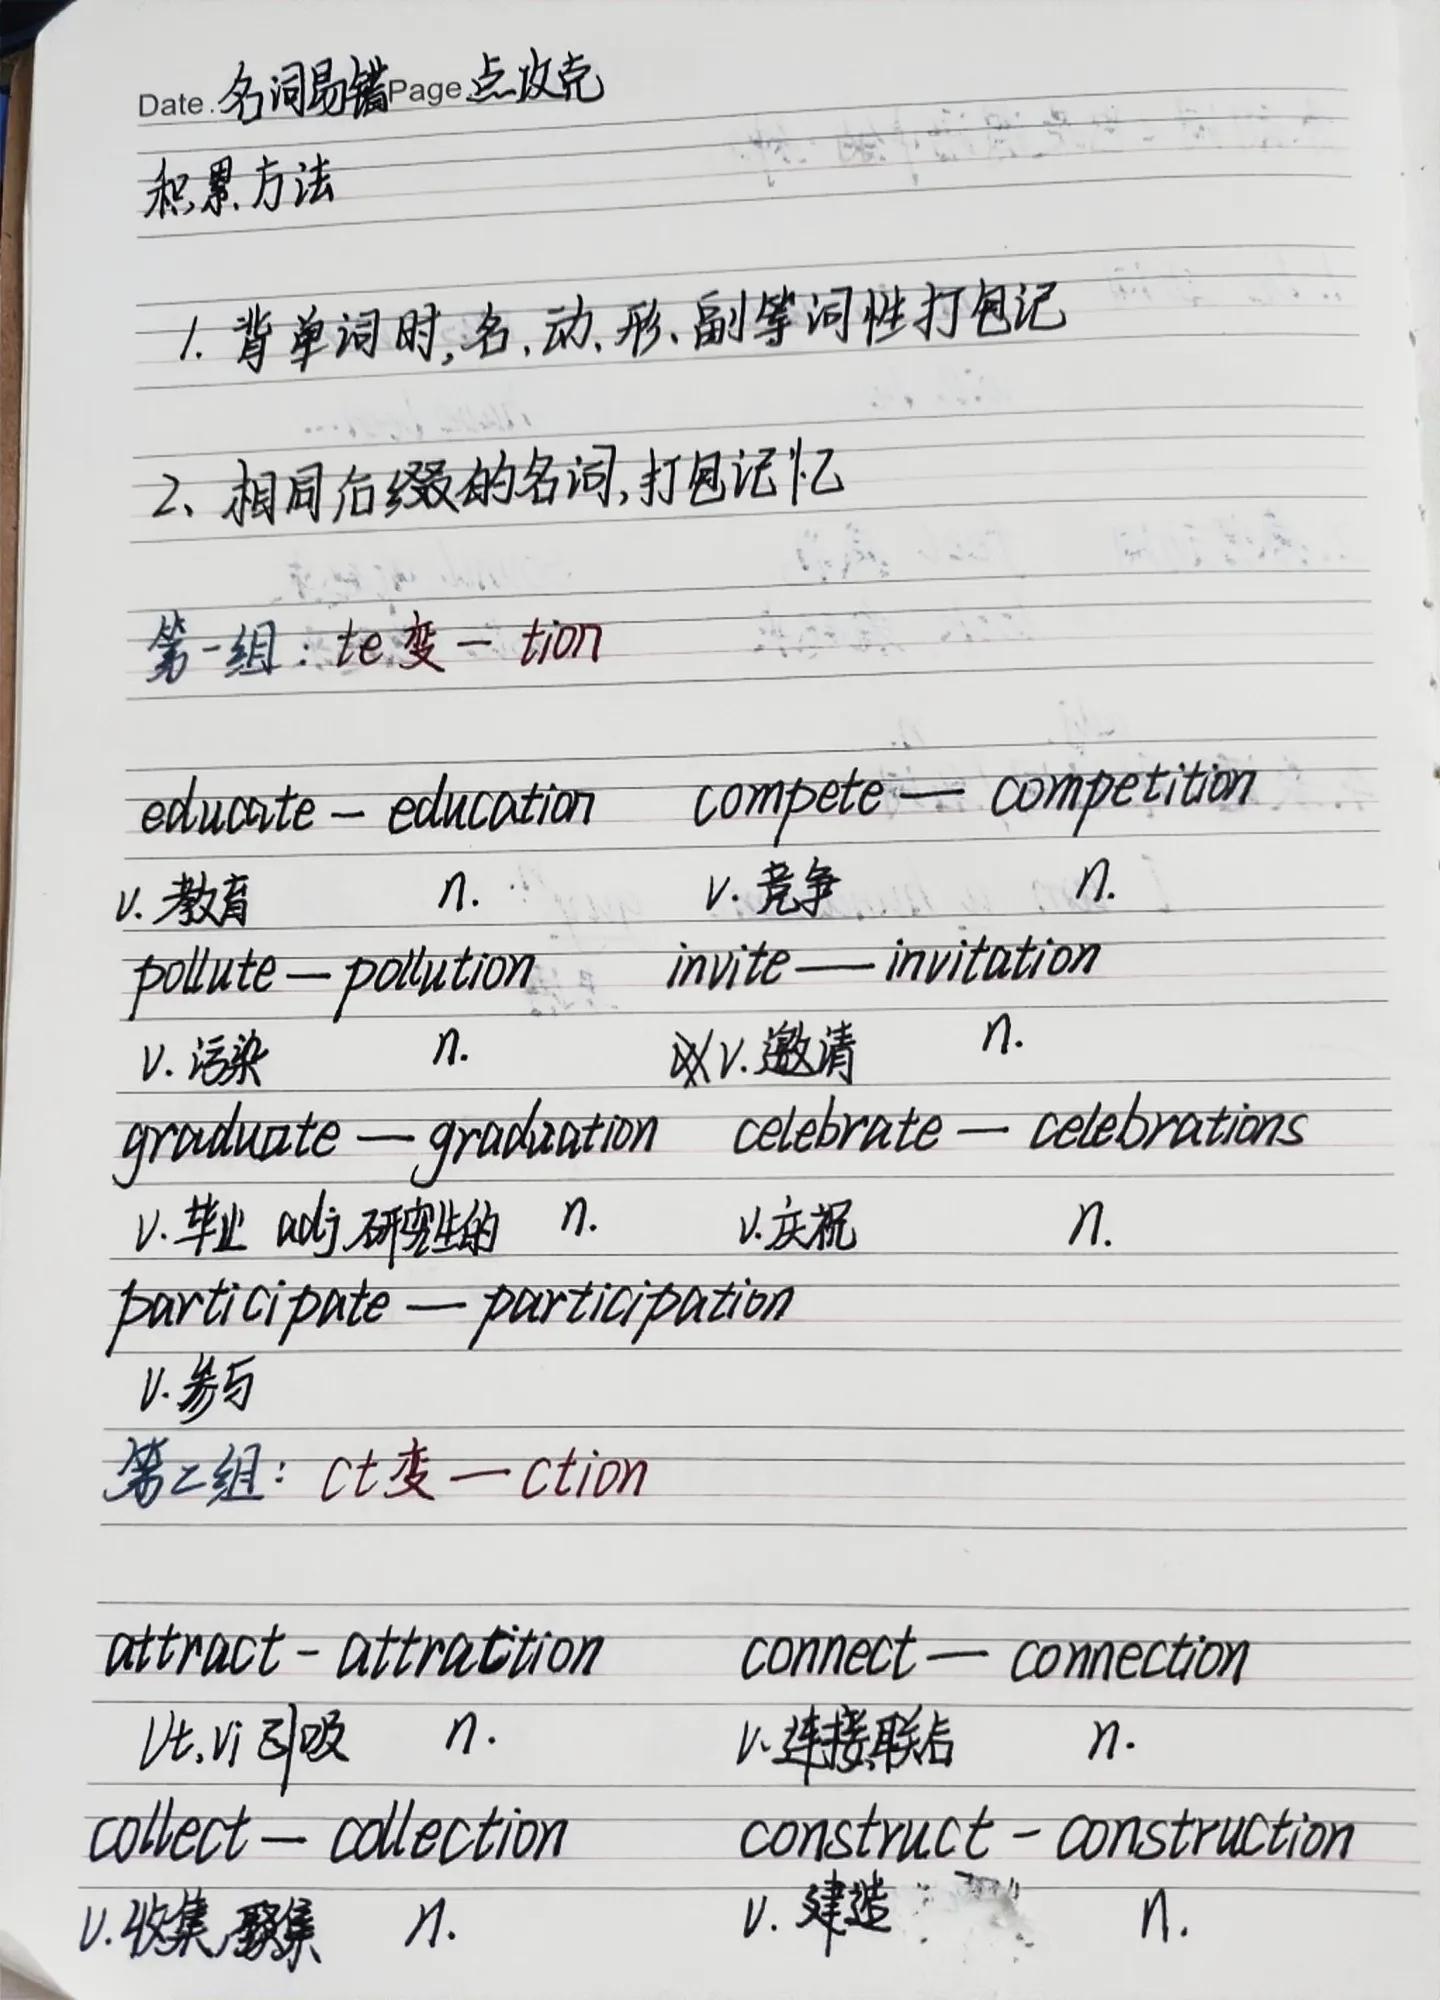 Date. 名词易错Page.点攻克
积累方法
1. 背单词时,名、动、形、副等词性打包记
2、相同后缀的名词,打包记忆
第一组: te变 — tion
educate — education compete — competition
v. 教育 n. v. 竞争 n.
pollute — pollution invite — invitation
v. 污染 n. v. 邀请 n.
graduate — graduation celebrate — celebrations
v. 毕业 adj 研究生的 n. v. 庆祝 n.
participate — participation
v. 参与
第二组: ct变 — ction
attract - attraction connect — connection
vt, vi 引吸 n. v. 连接,联结 n.
collect — collection construct - construction
v. 收集,聚集 n. v. 建造 n.